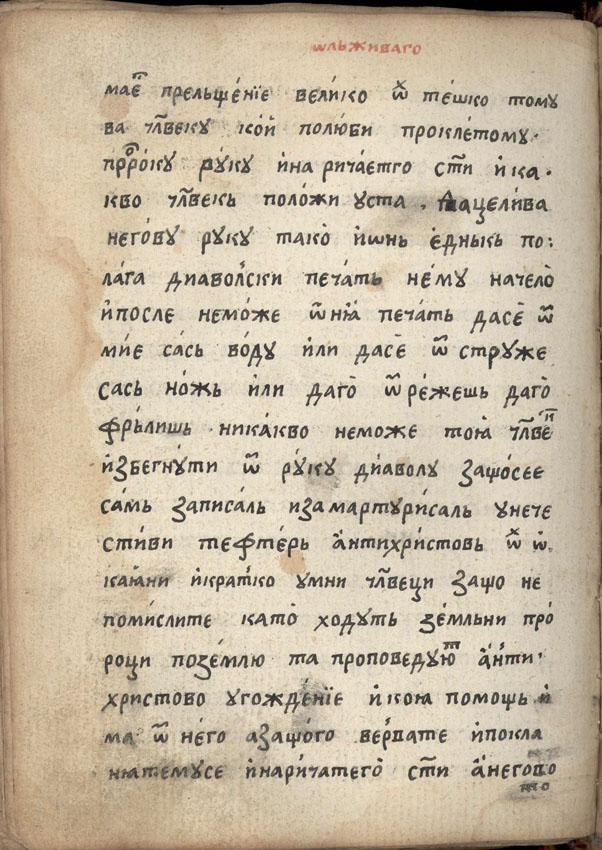 ѡльживаго
маеⷮ прельщенїе велико ѿ тешко тому
ва чл҃веку кой полюби проклетому·
прⷪ҇року руку и нарича́етго ст҃и и ка·
кво чл҃векь положи уста. да целива
негову руку тако и ѡнь единькь по:
лага диаволски печать нему на чело
и после неможе ѿ нїѧ печать дасе ѿ
мие сась воду или дасе ѿ струже
сась ножь или даго ѿ режешь даго
фрьлишь. никакво неможе тоѧ чл҃векⷤ
избегнути ѿ руку диаволу защосее
самь записаль и замартурисаль у нече
стиви тефтерь антихристовь ѿ ѡ
каꙗни и кратко умни чл҃веци защо не
помислите като ходуть земльни про
роци по землю та проповедуюⷮ анти·
христово угождение и коꙗ помощь и
ма ѿ него а защого вервате и покла
нꙗтемусе и наричатего ст҃и а негово